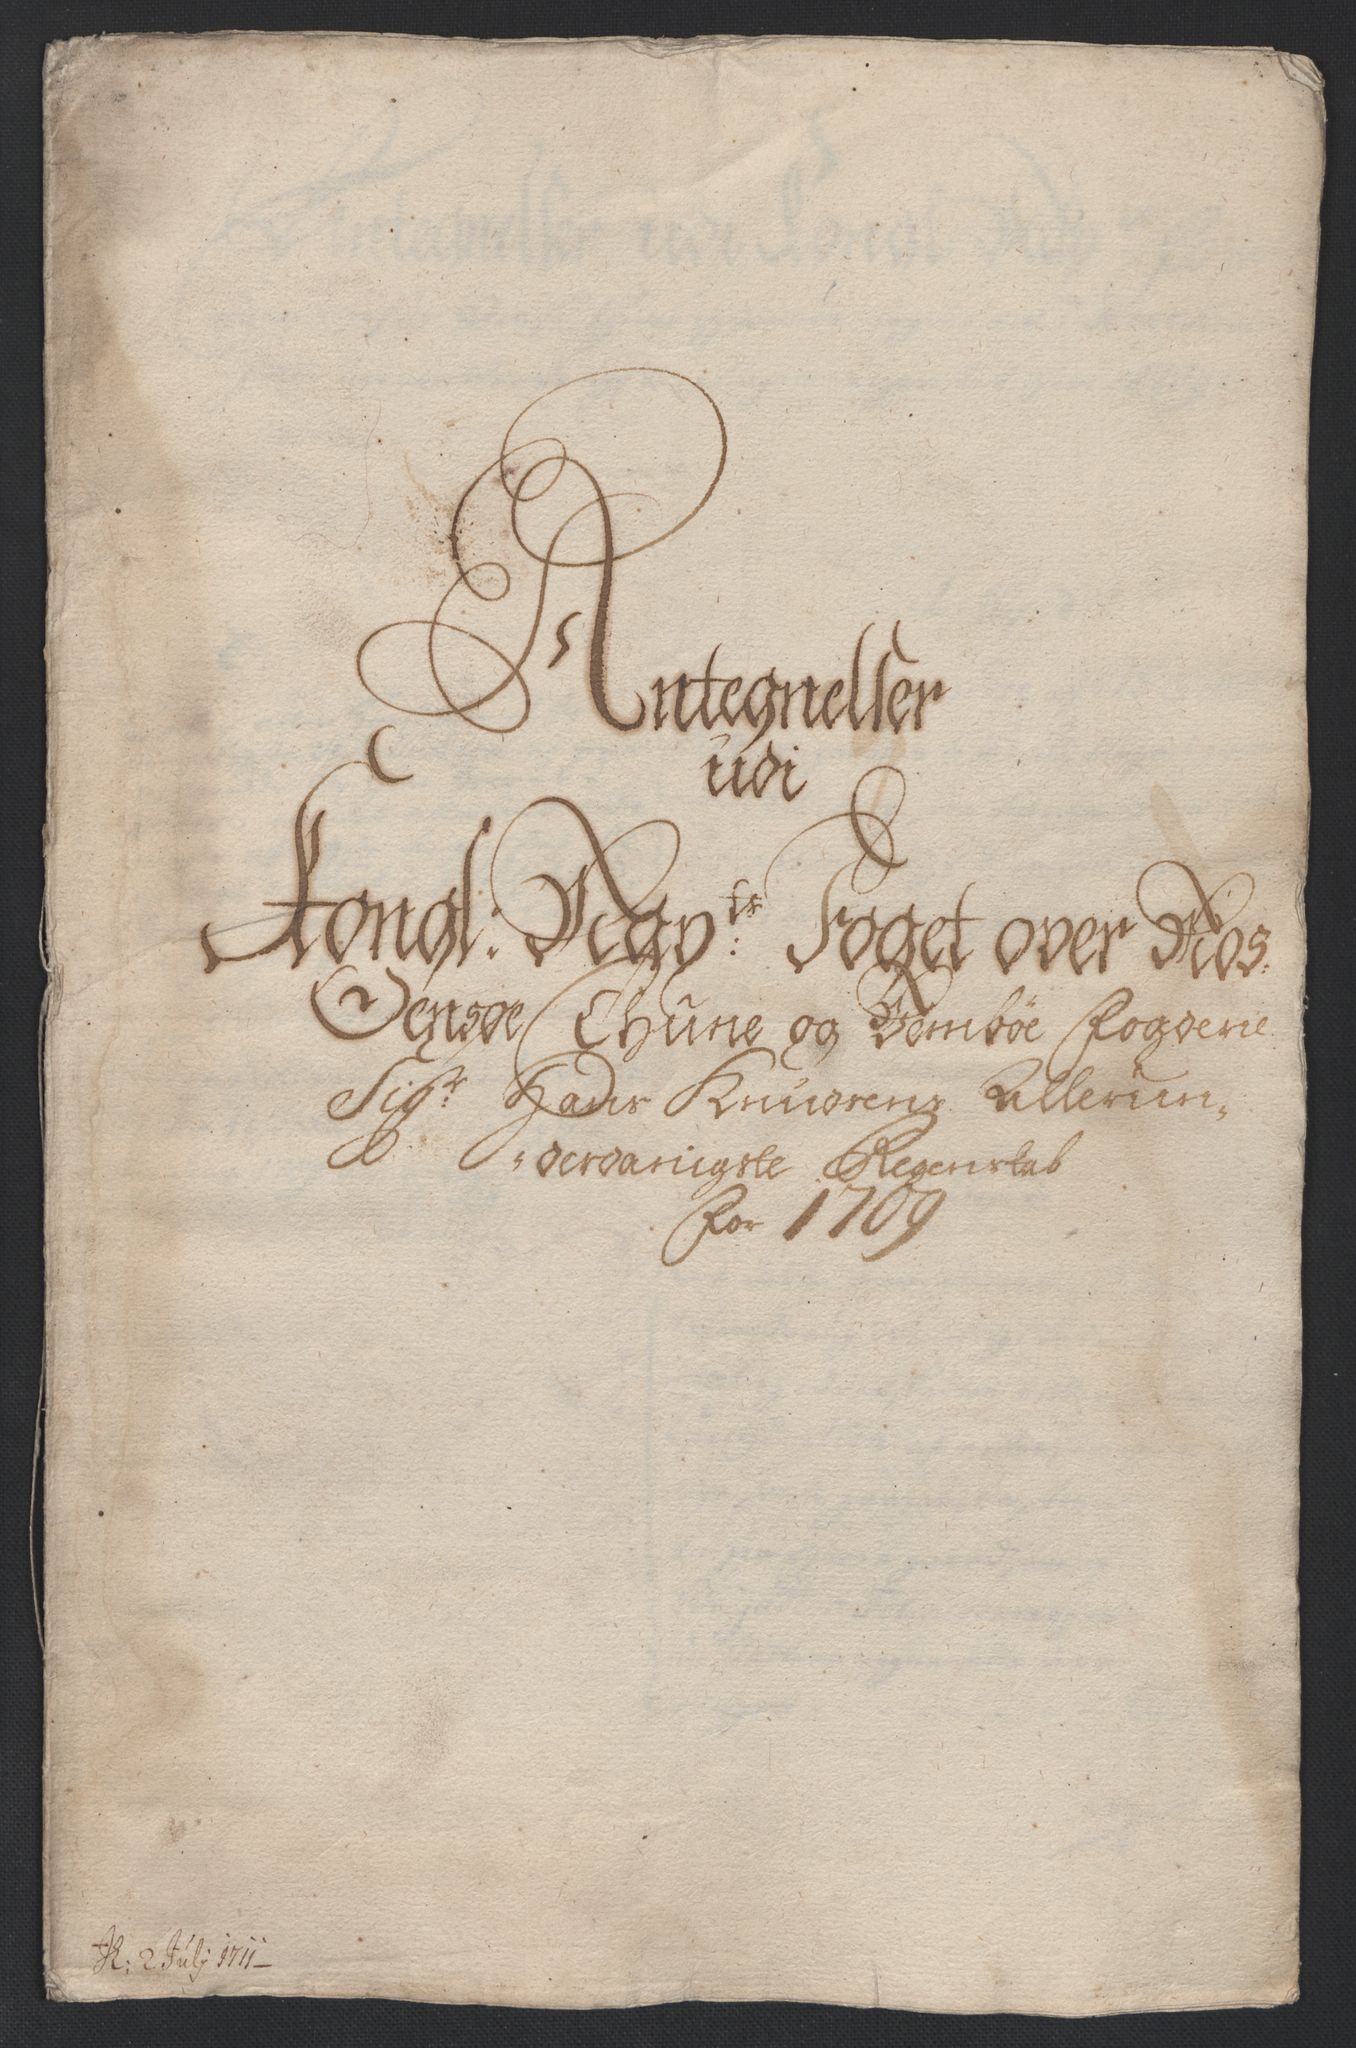 Antegnelser
udi
Kongl: May:ts Foget over Røs
Oensøe Thune og Vembøe Fogderie
Sig:r Hans Knudsens Allerun„
„derdanigste Regenskab
For 1709
R: 2 Julj 1711